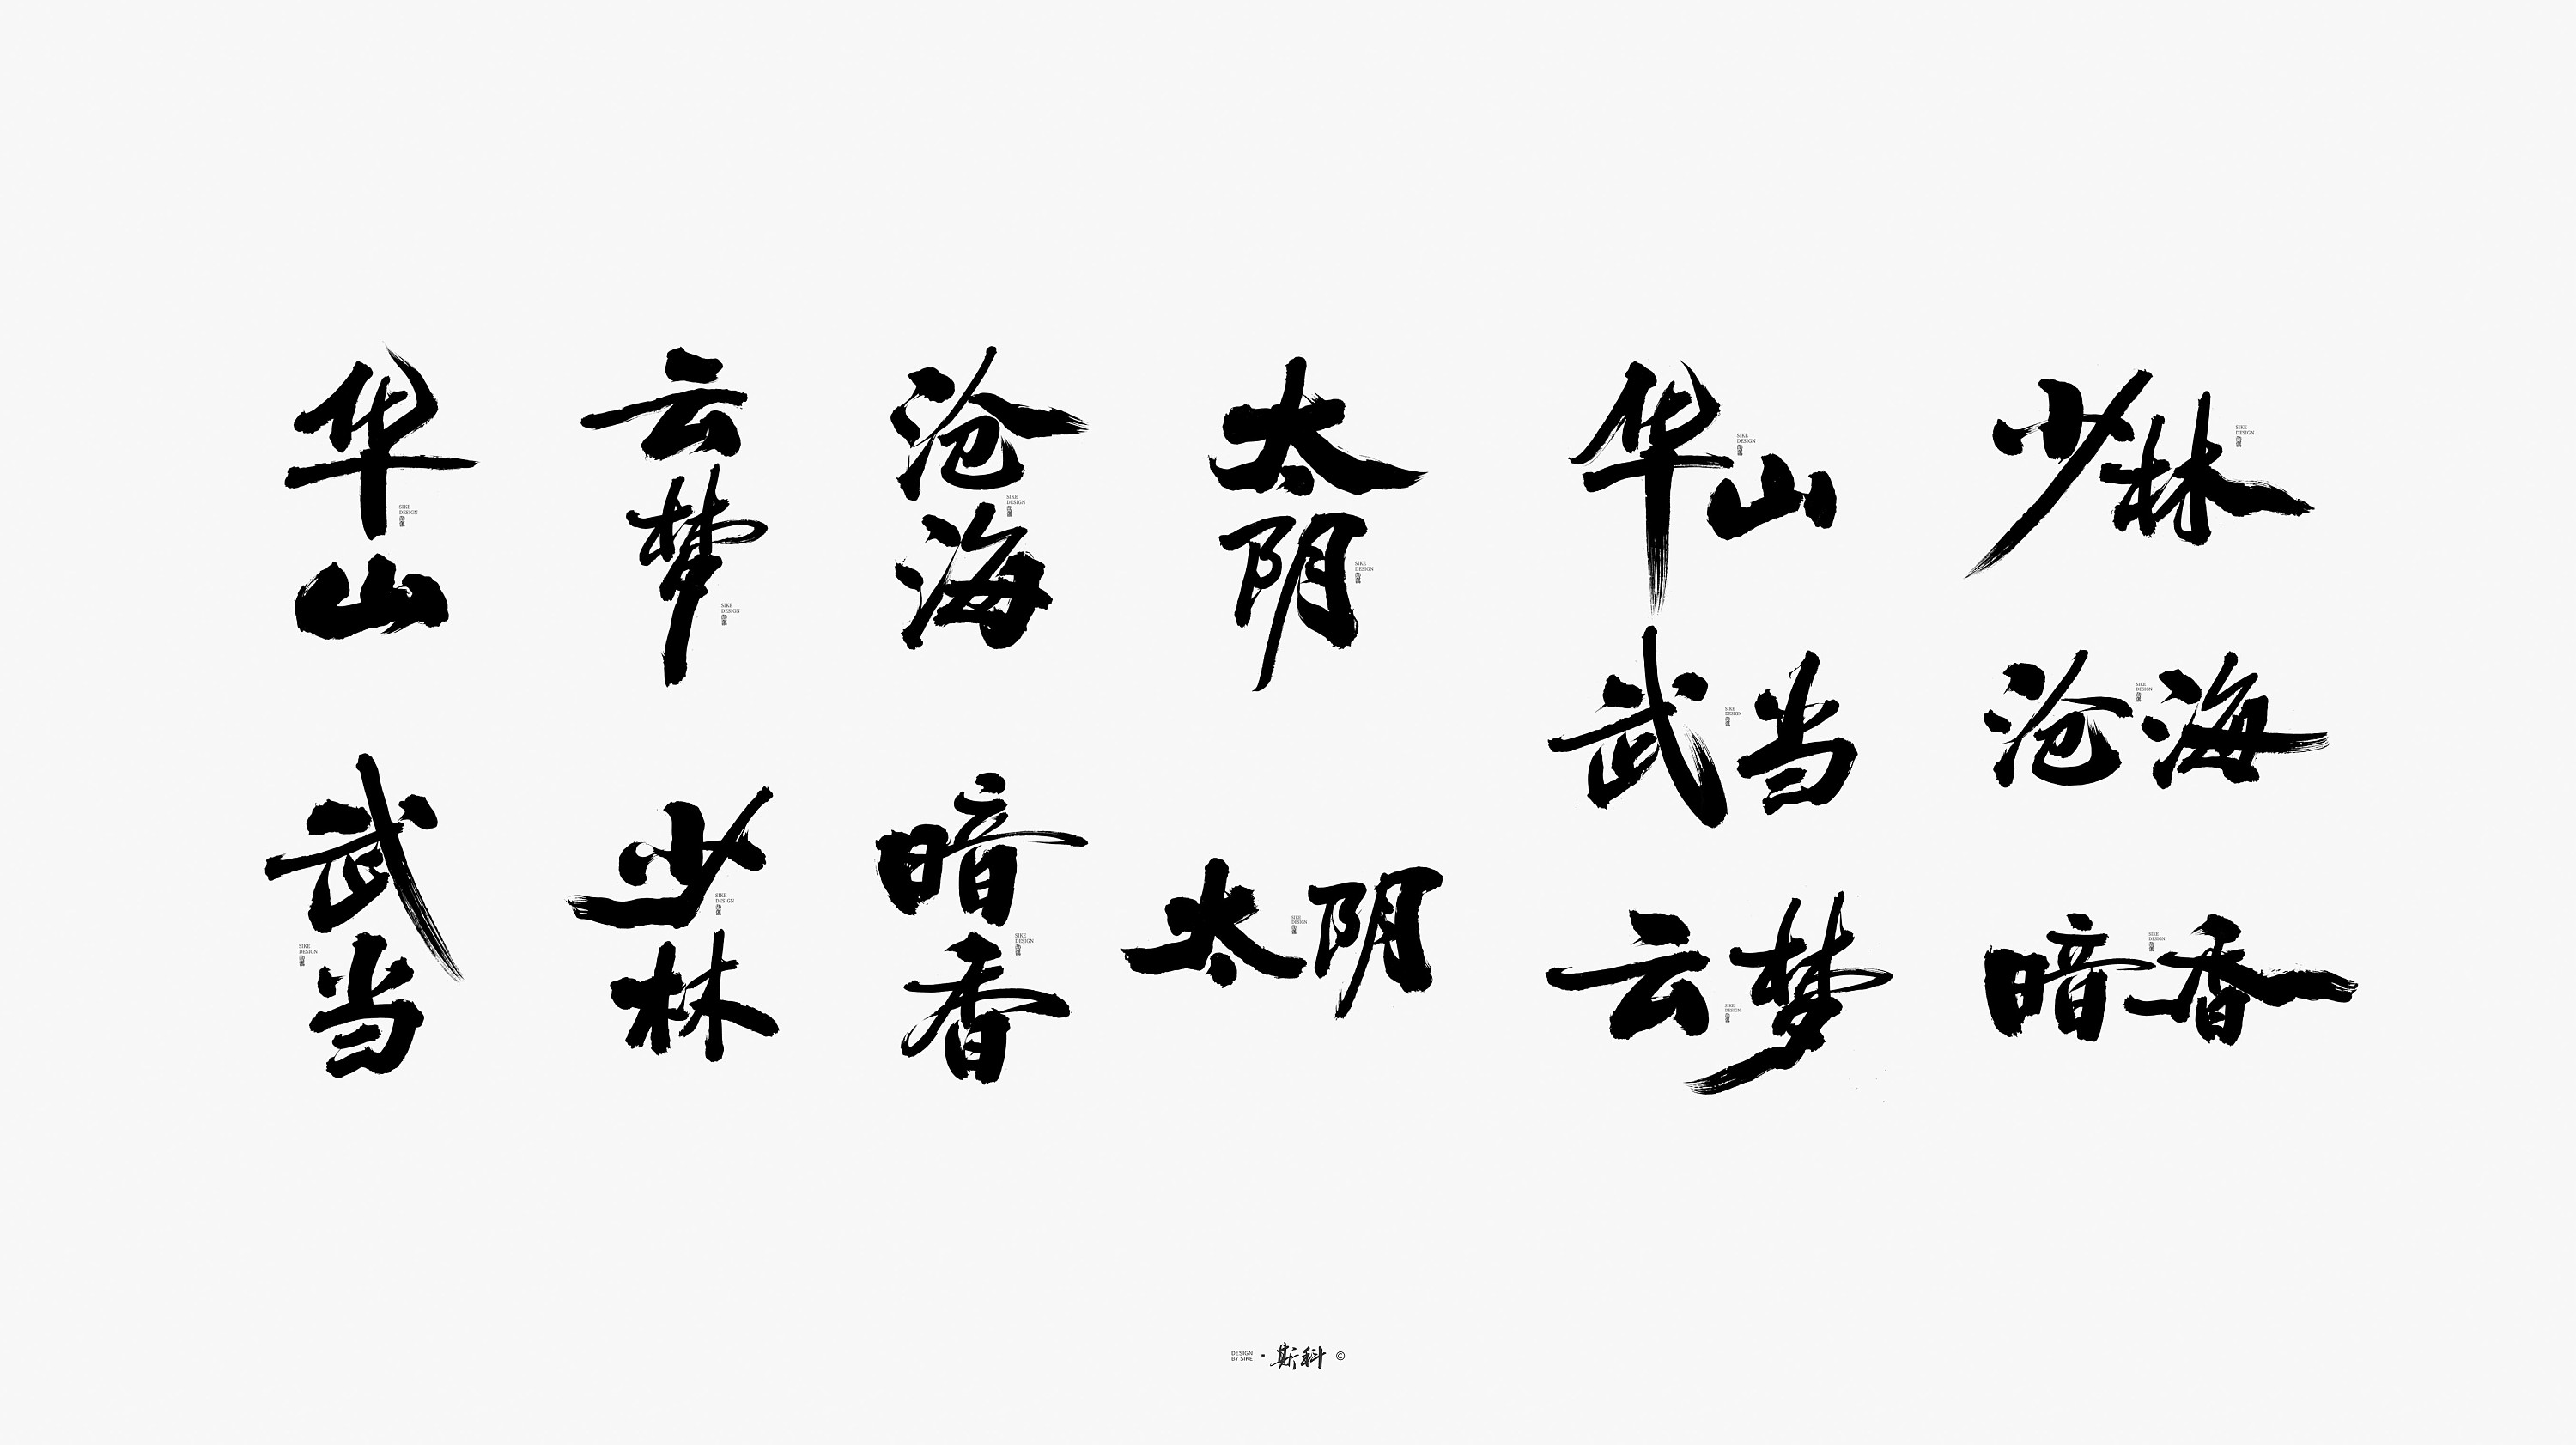 华山
SIKE DESIGN
云梦
SIKE DESIGN
沧海
SIKE DESIGN
太阴
SIKE DESIGN
华山
SIKE DESIGN
少林
SIKE DESIGN
武当
SIKE DESIGN
沧海
SIKE DESIGN
武当
SIKE DESIGN
少林
SIKE DESIGN
暗香
SIKE DESIGN
太阴
SIKE DESIGN
云梦
SIKE DESIGN
暗香
SIKE DESIGN
DESIGN BY SIKE · 斯科 ©